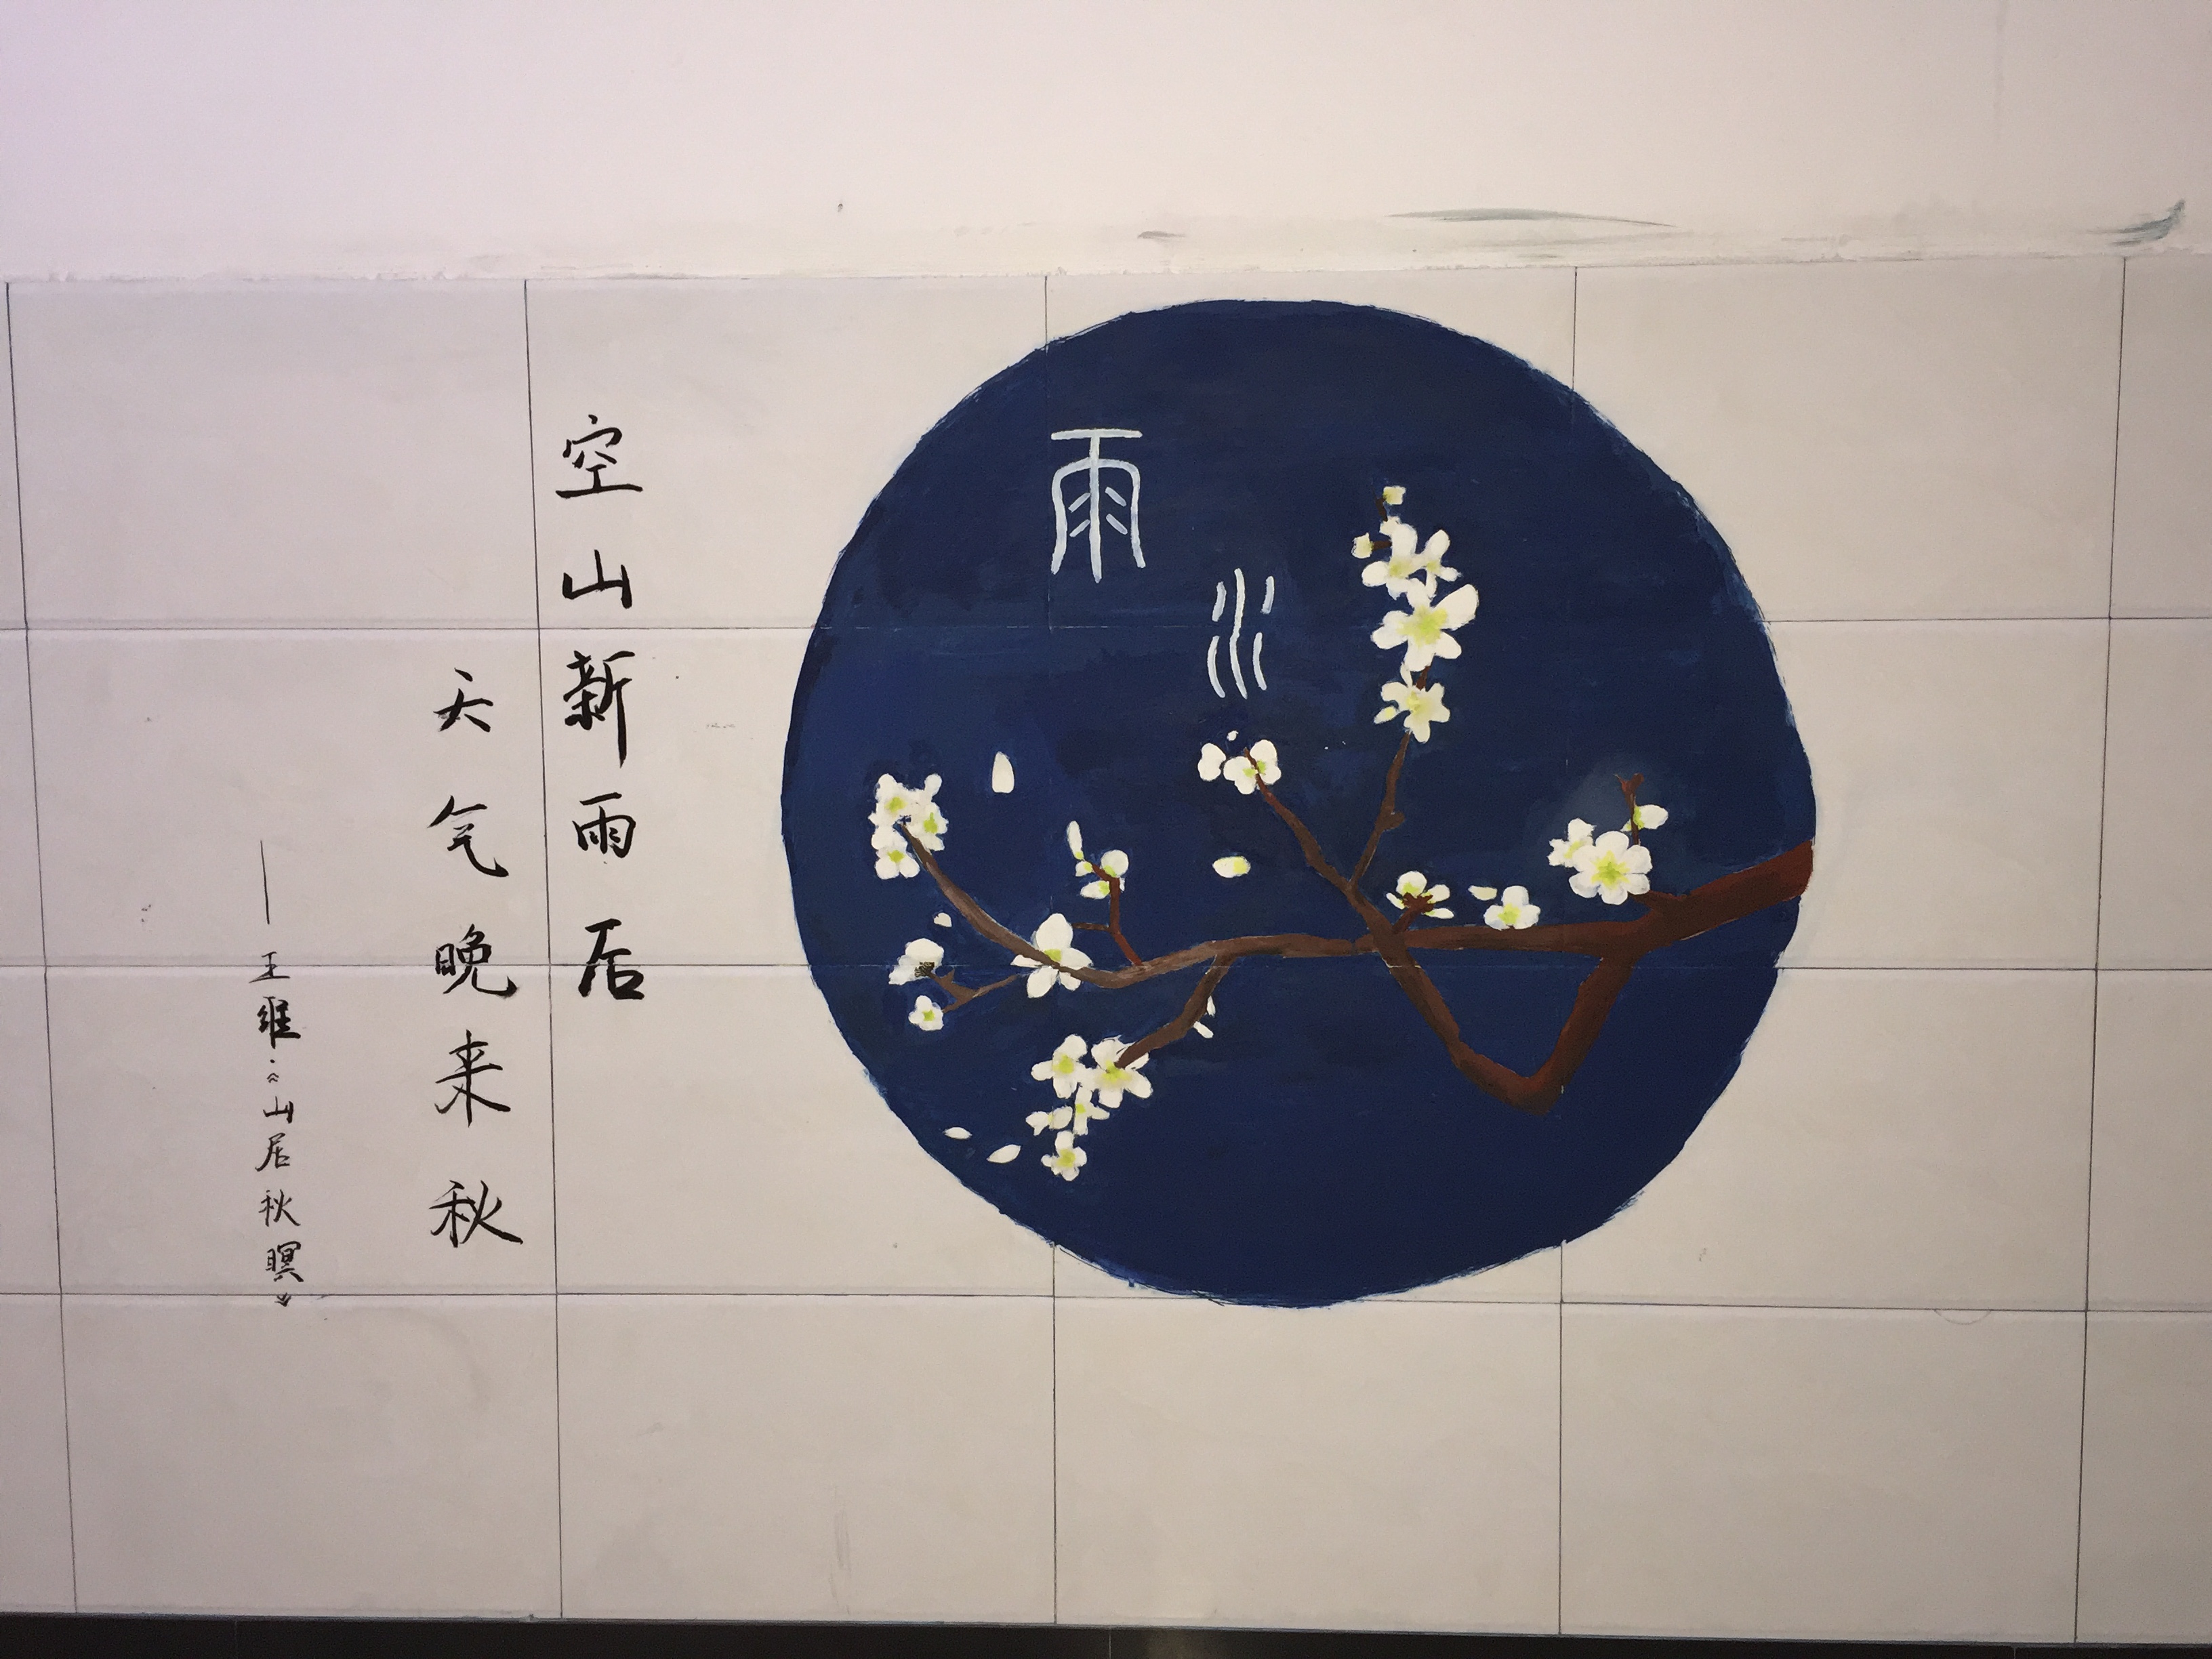 雨水
空山新雨后
天气晚来秋
——王维:《山居秋暝》